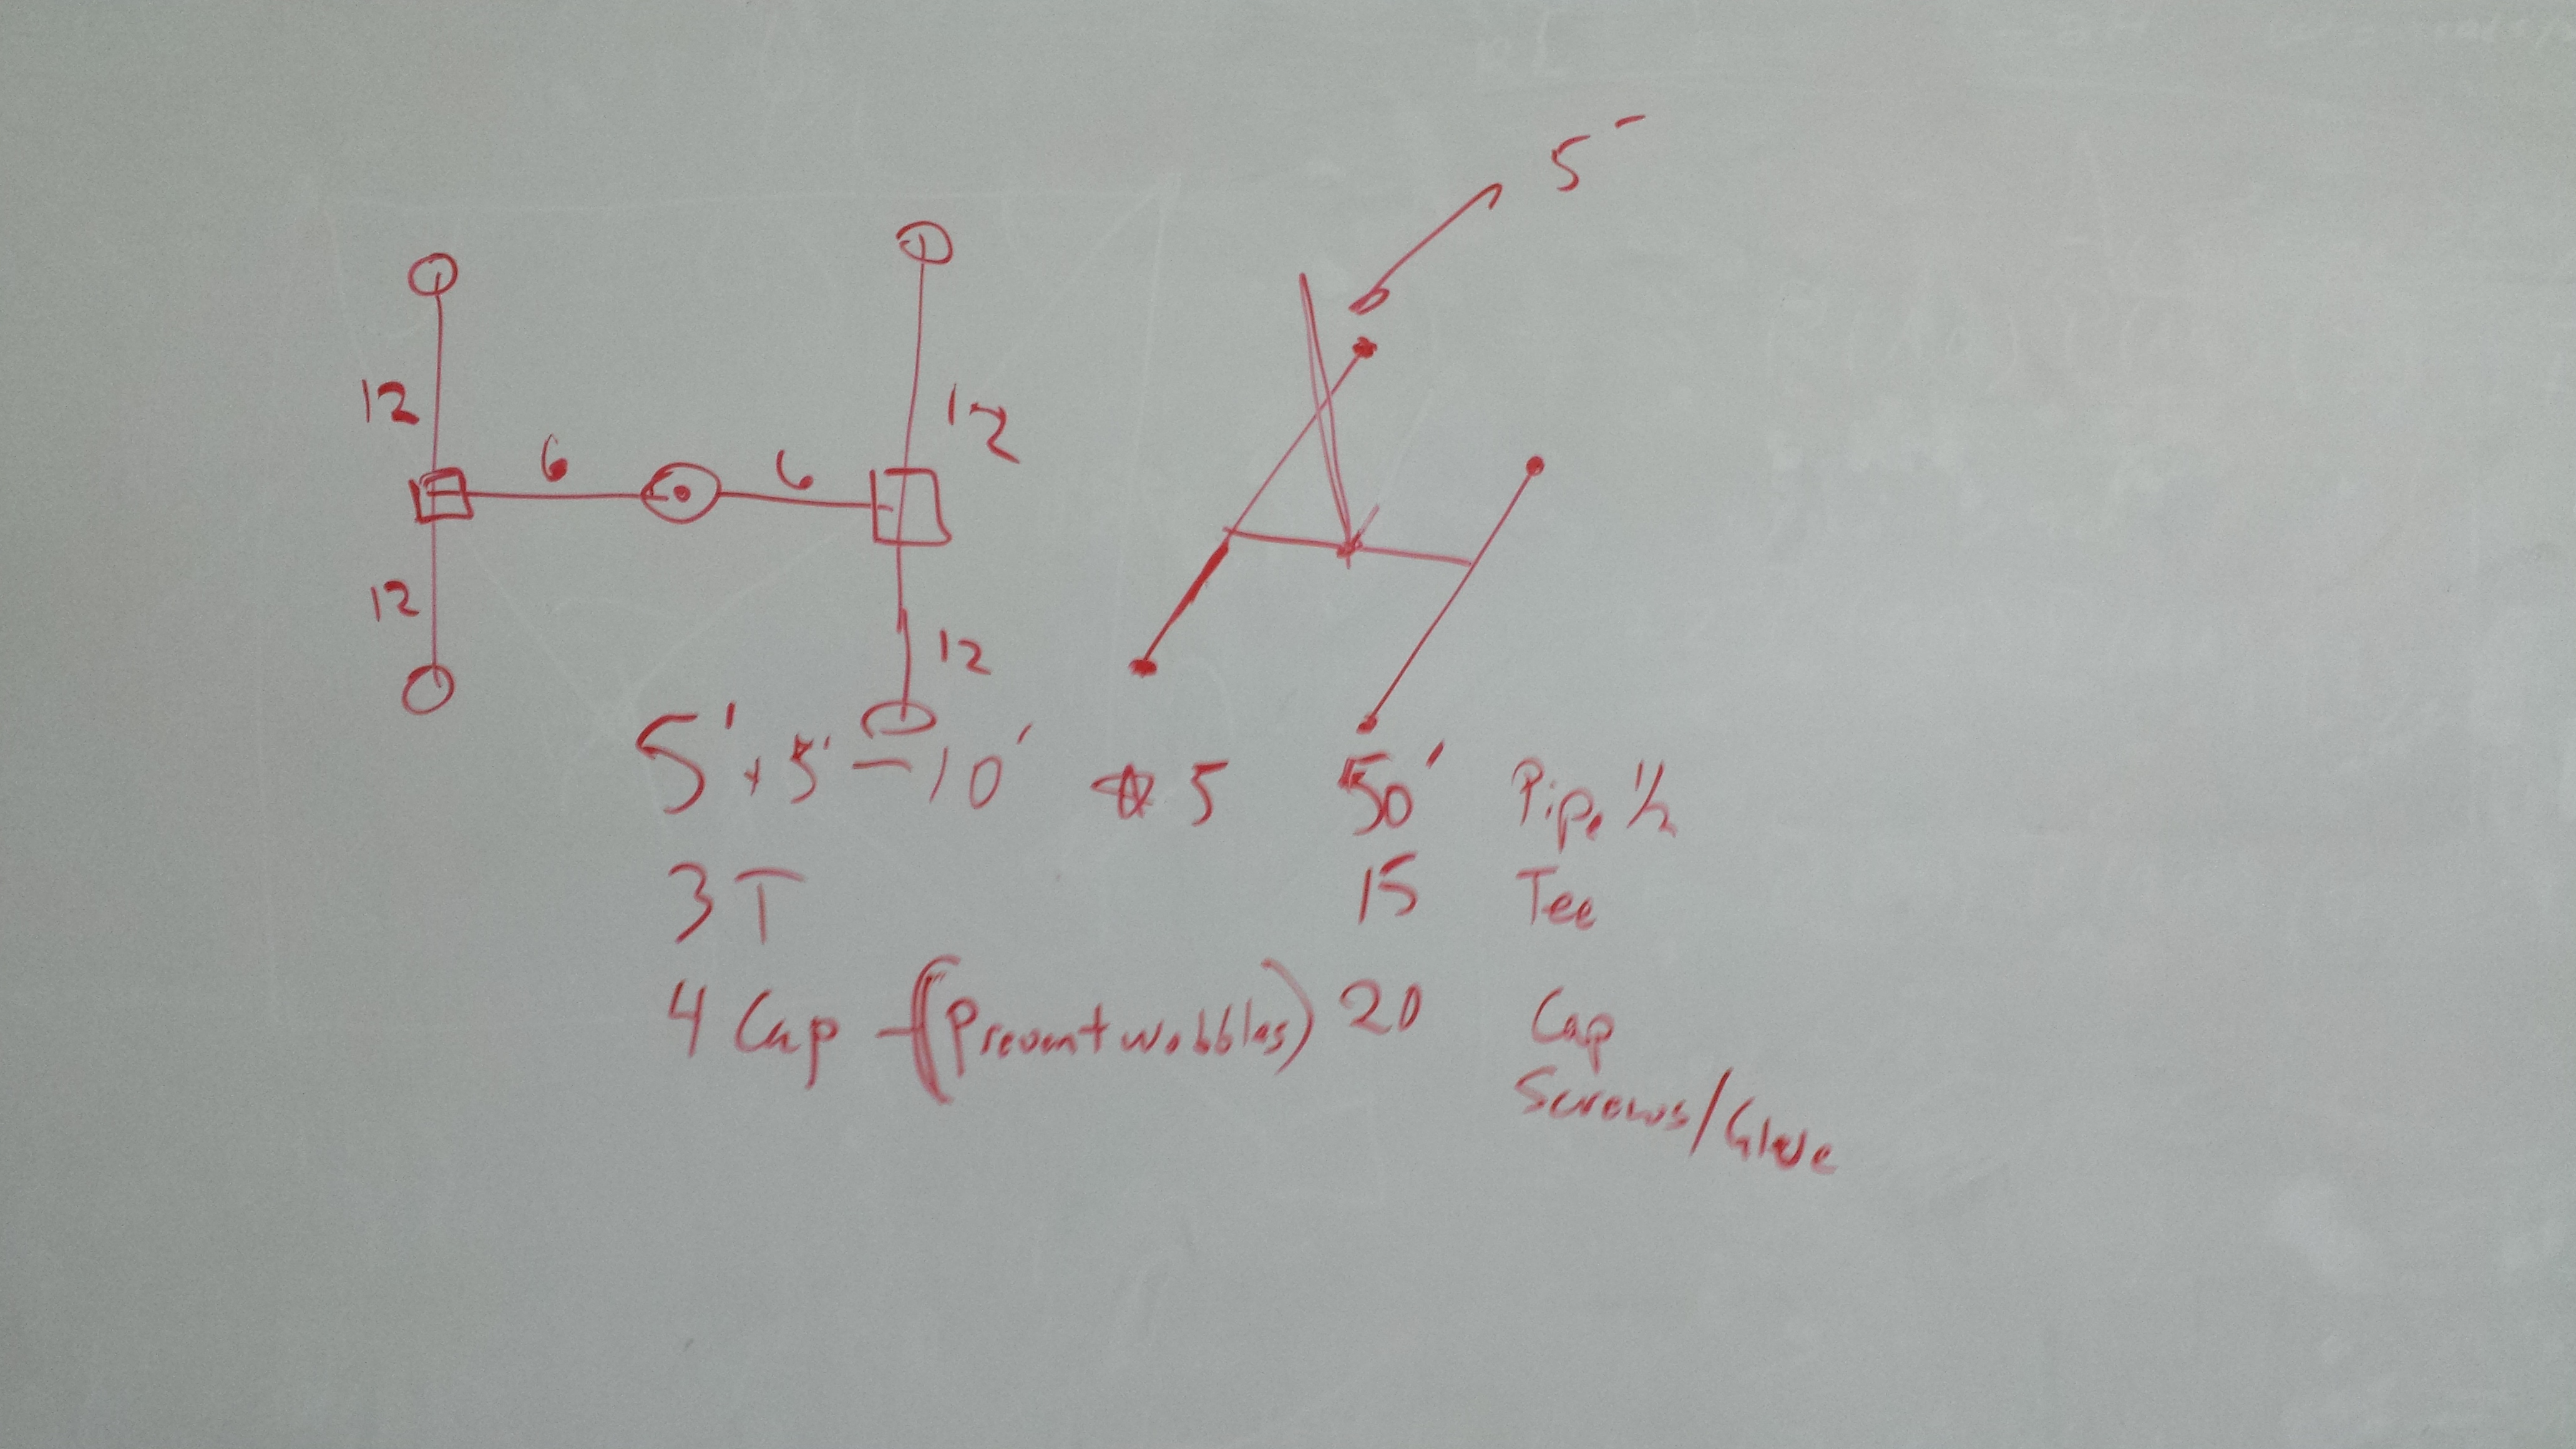 5'
12
12
6
6
12
12
5' + 5' = 10' * 5 50' Pipe 1/2
3 T 15 Tee
4 Cap - (Prevent wobbles) 20 Cap
Screws/Glue